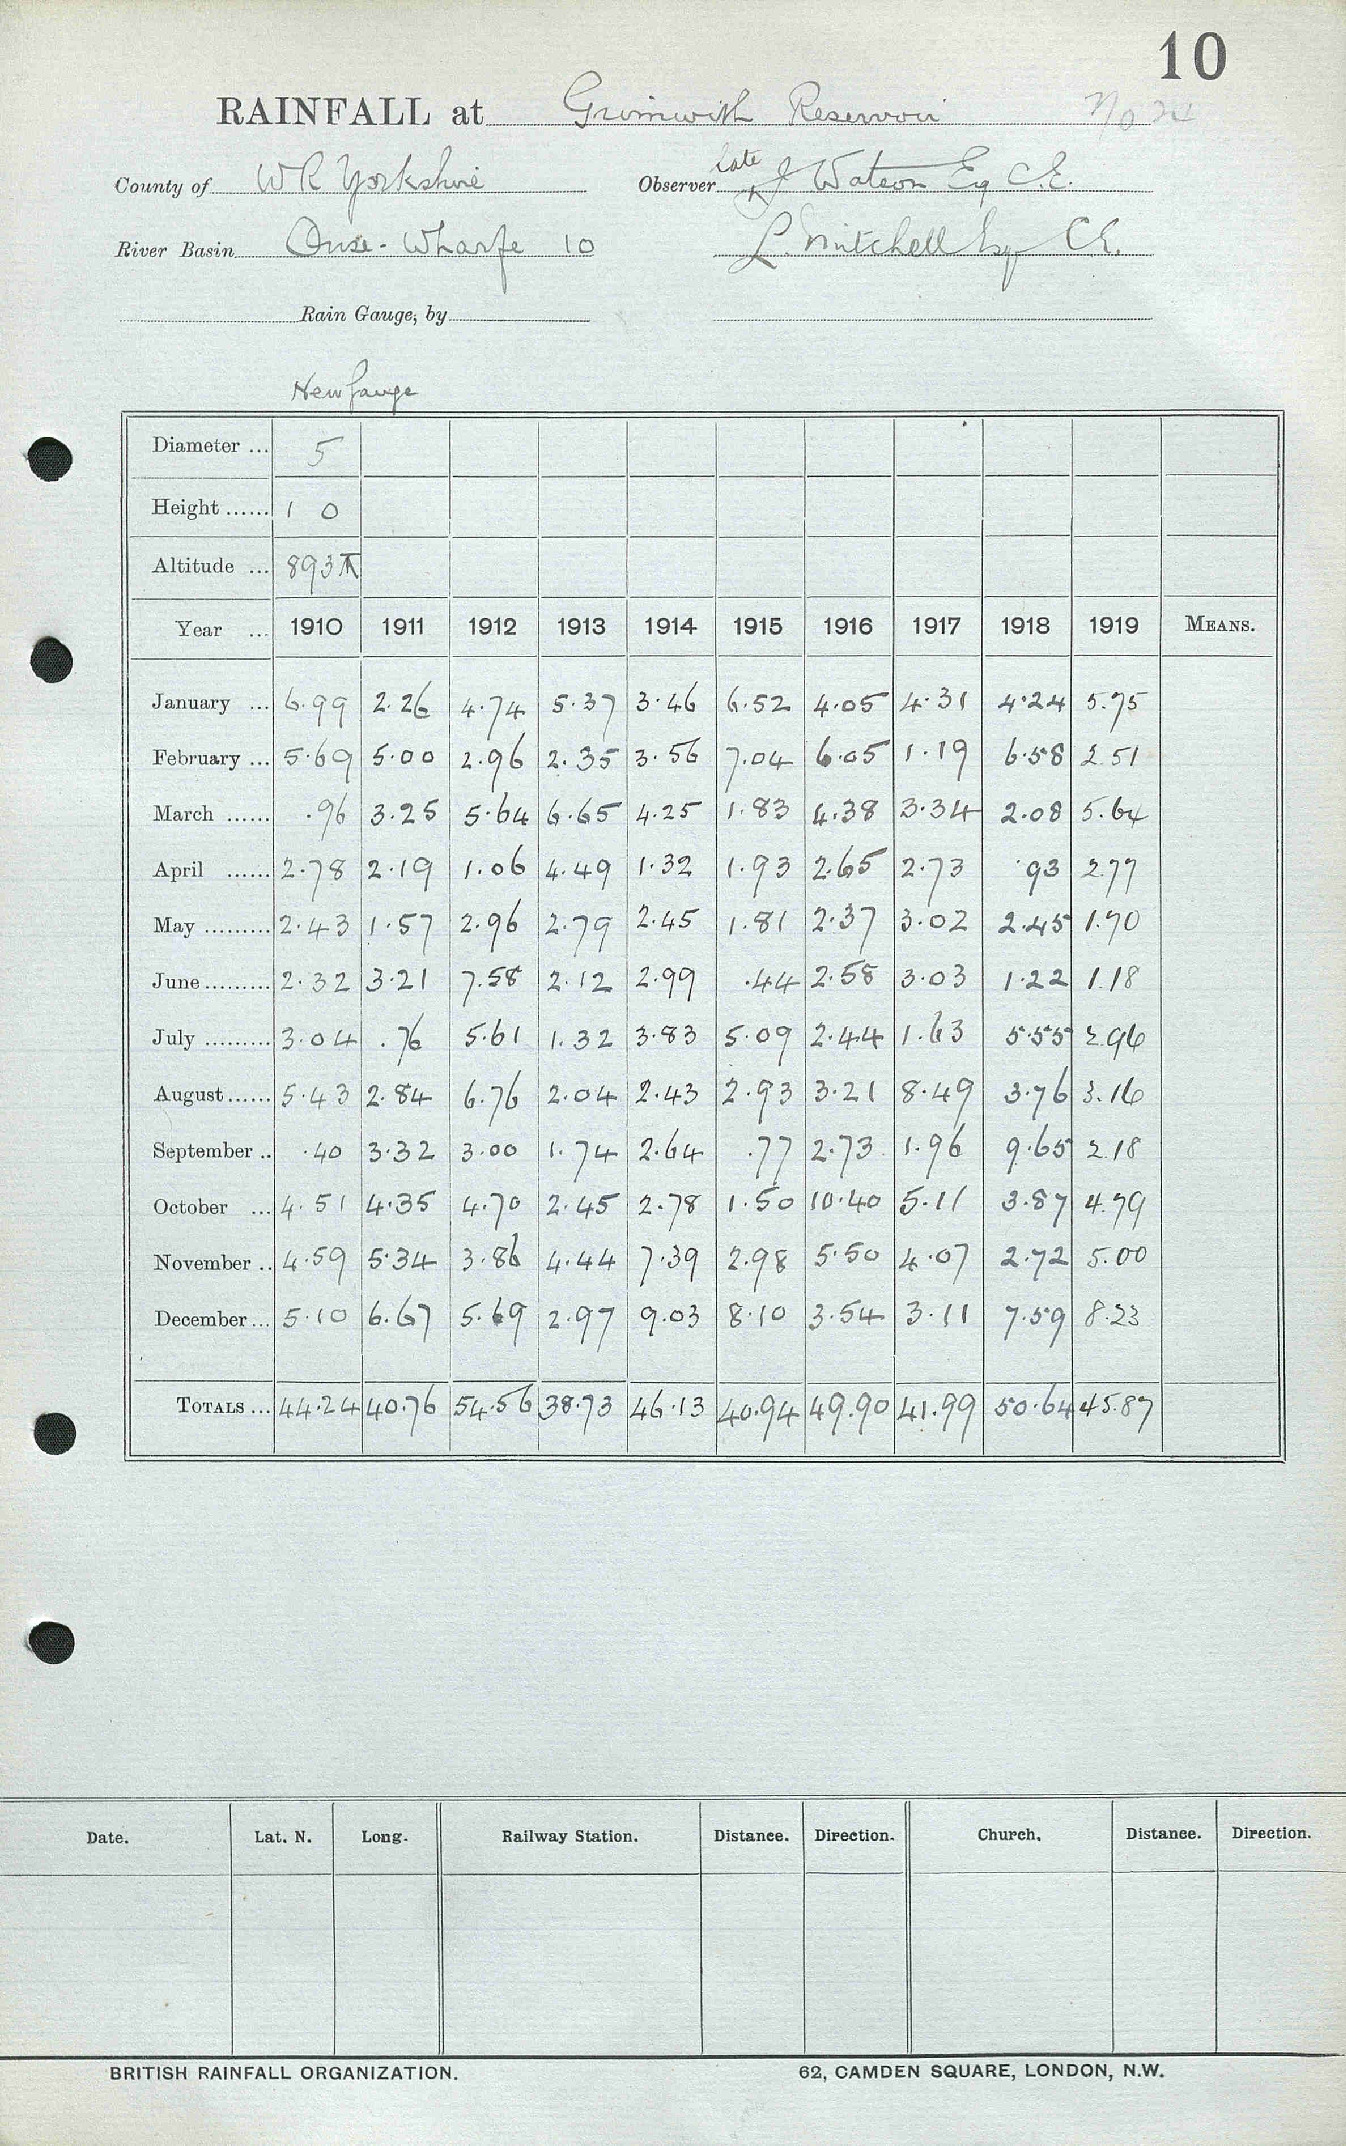 10
RAINFALL at Grimwith Reservoir No 24
County of WR Yorkshire Observer late J Watson Esq C.E.
River Basin Ouse-Wharfe 10 L. Mitchell Esq C.E.
Rain Gauge, by
New Gauge
Diameter ... 5
Height ...... 1 0
Altitude ... 893
Year ... 1910 1911 1912 1913 1914 1915 1916 1917 1918 1919 MEANS.
January ... 6.99 2.26 4.74 5.37 3.46 6.52 4.05 4.31 4.24 5.75
February ... 5.69 5.00 2.96 2.35 3.56 7.04 6.05 1.19 6.58 2.51
March ...... .96 3.25 5.64 6.65 4.25 1.83 4.38 3.34 2.08 5.64
April ...... 2.78 2.19 1.06 4.49 1.32 1.93 2.65 2.73 .93 2.77
May ......... 2.43 1.57 2.96 2.79 2.45 1.81 2.37 3.02 2.45 1.70
June ......... 2.32 3.21 7.58 2.12 2.99 .44 2.58 3.03 1.22 1.18
July ......... 3.04 .76 5.61 1.32 3.83 5.09 2.44 1.63 5.55 2.96
August ...... 5.43 2.84 6.76 2.04 2.43 2.93 3.21 8.49 3.76 3.16
September .. .40 3.32 3.00 1.74 2.64 .77 2.73 1.96 9.65 2.18
October ... 4.51 4.35 4.70 2.45 2.78 1.50 10.40 5.11 3.87 4.79
November .. 4.59 5.34 3.86 4.44 7.39 2.98 5.50 4.07 2.72 5.00
December ... 5.10 6.67 5.69 2.97 9.03 8.10 3.54 3.11 7.59 8.23
TOTALS ... 44.24 40.76 54.56 38.73 46.13 40.94 49.90 41.99 50.64 45.87
Date. Lat. N. Long. Railway Station. Distance. Direction. Church. Distance. Direction.
BRITISH RAINFALL ORGANIZATION. 62, CAMDEN SQUARE, LONDON, N.W.